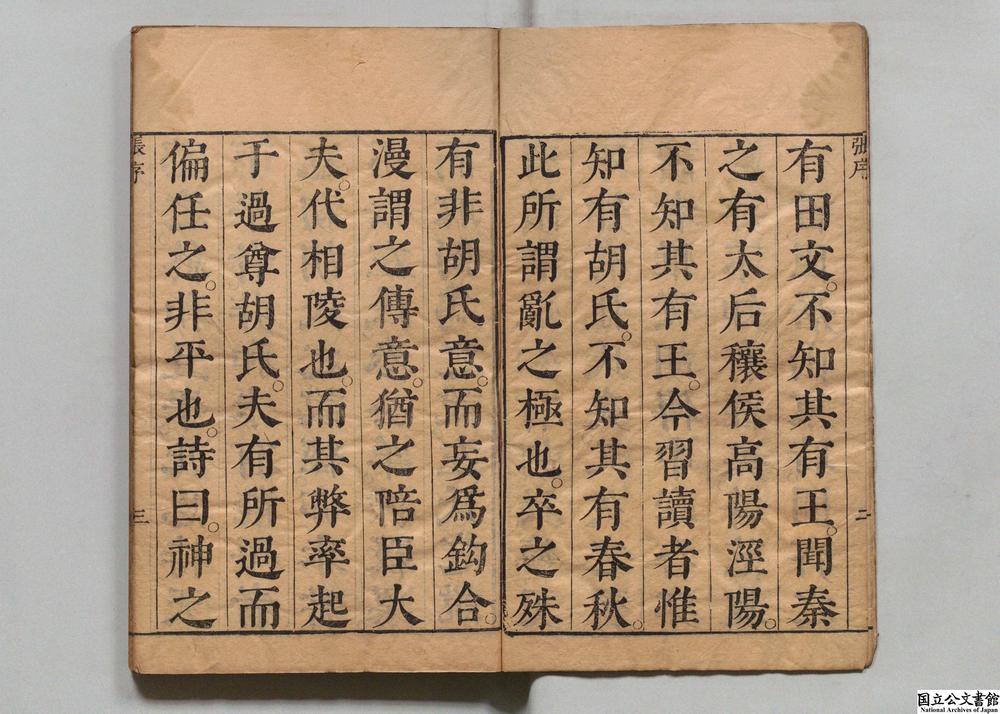 張序
有田文。不知其有王。聞秦
之有太后穰侯高陽涇陽。
不知其有王。今習讀者惟
知有胡氏。不知其有春秋。
此所謂亂之極也。卒之殊
二
有非胡氏意。而妄爲鈎合。
漫謂之傳意。猶之陪臣大
夫。代相陵也。而其弊率起
于過尊胡氏。夫有所過而
偏任之。非平也。詩曰。神之
張序
三
国立公文書館
National Archives of Japan